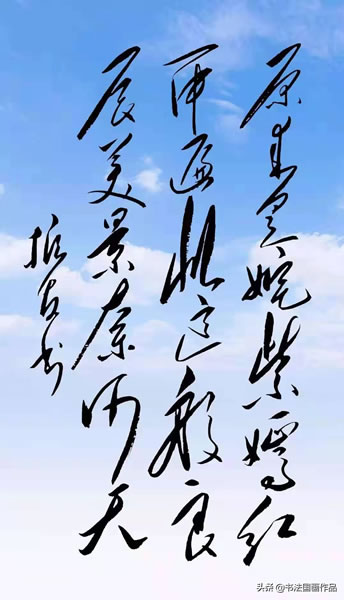 原来是姹紫嫣红
开遍似这般良
辰美景奈何天
书
头条 @书法国画作品